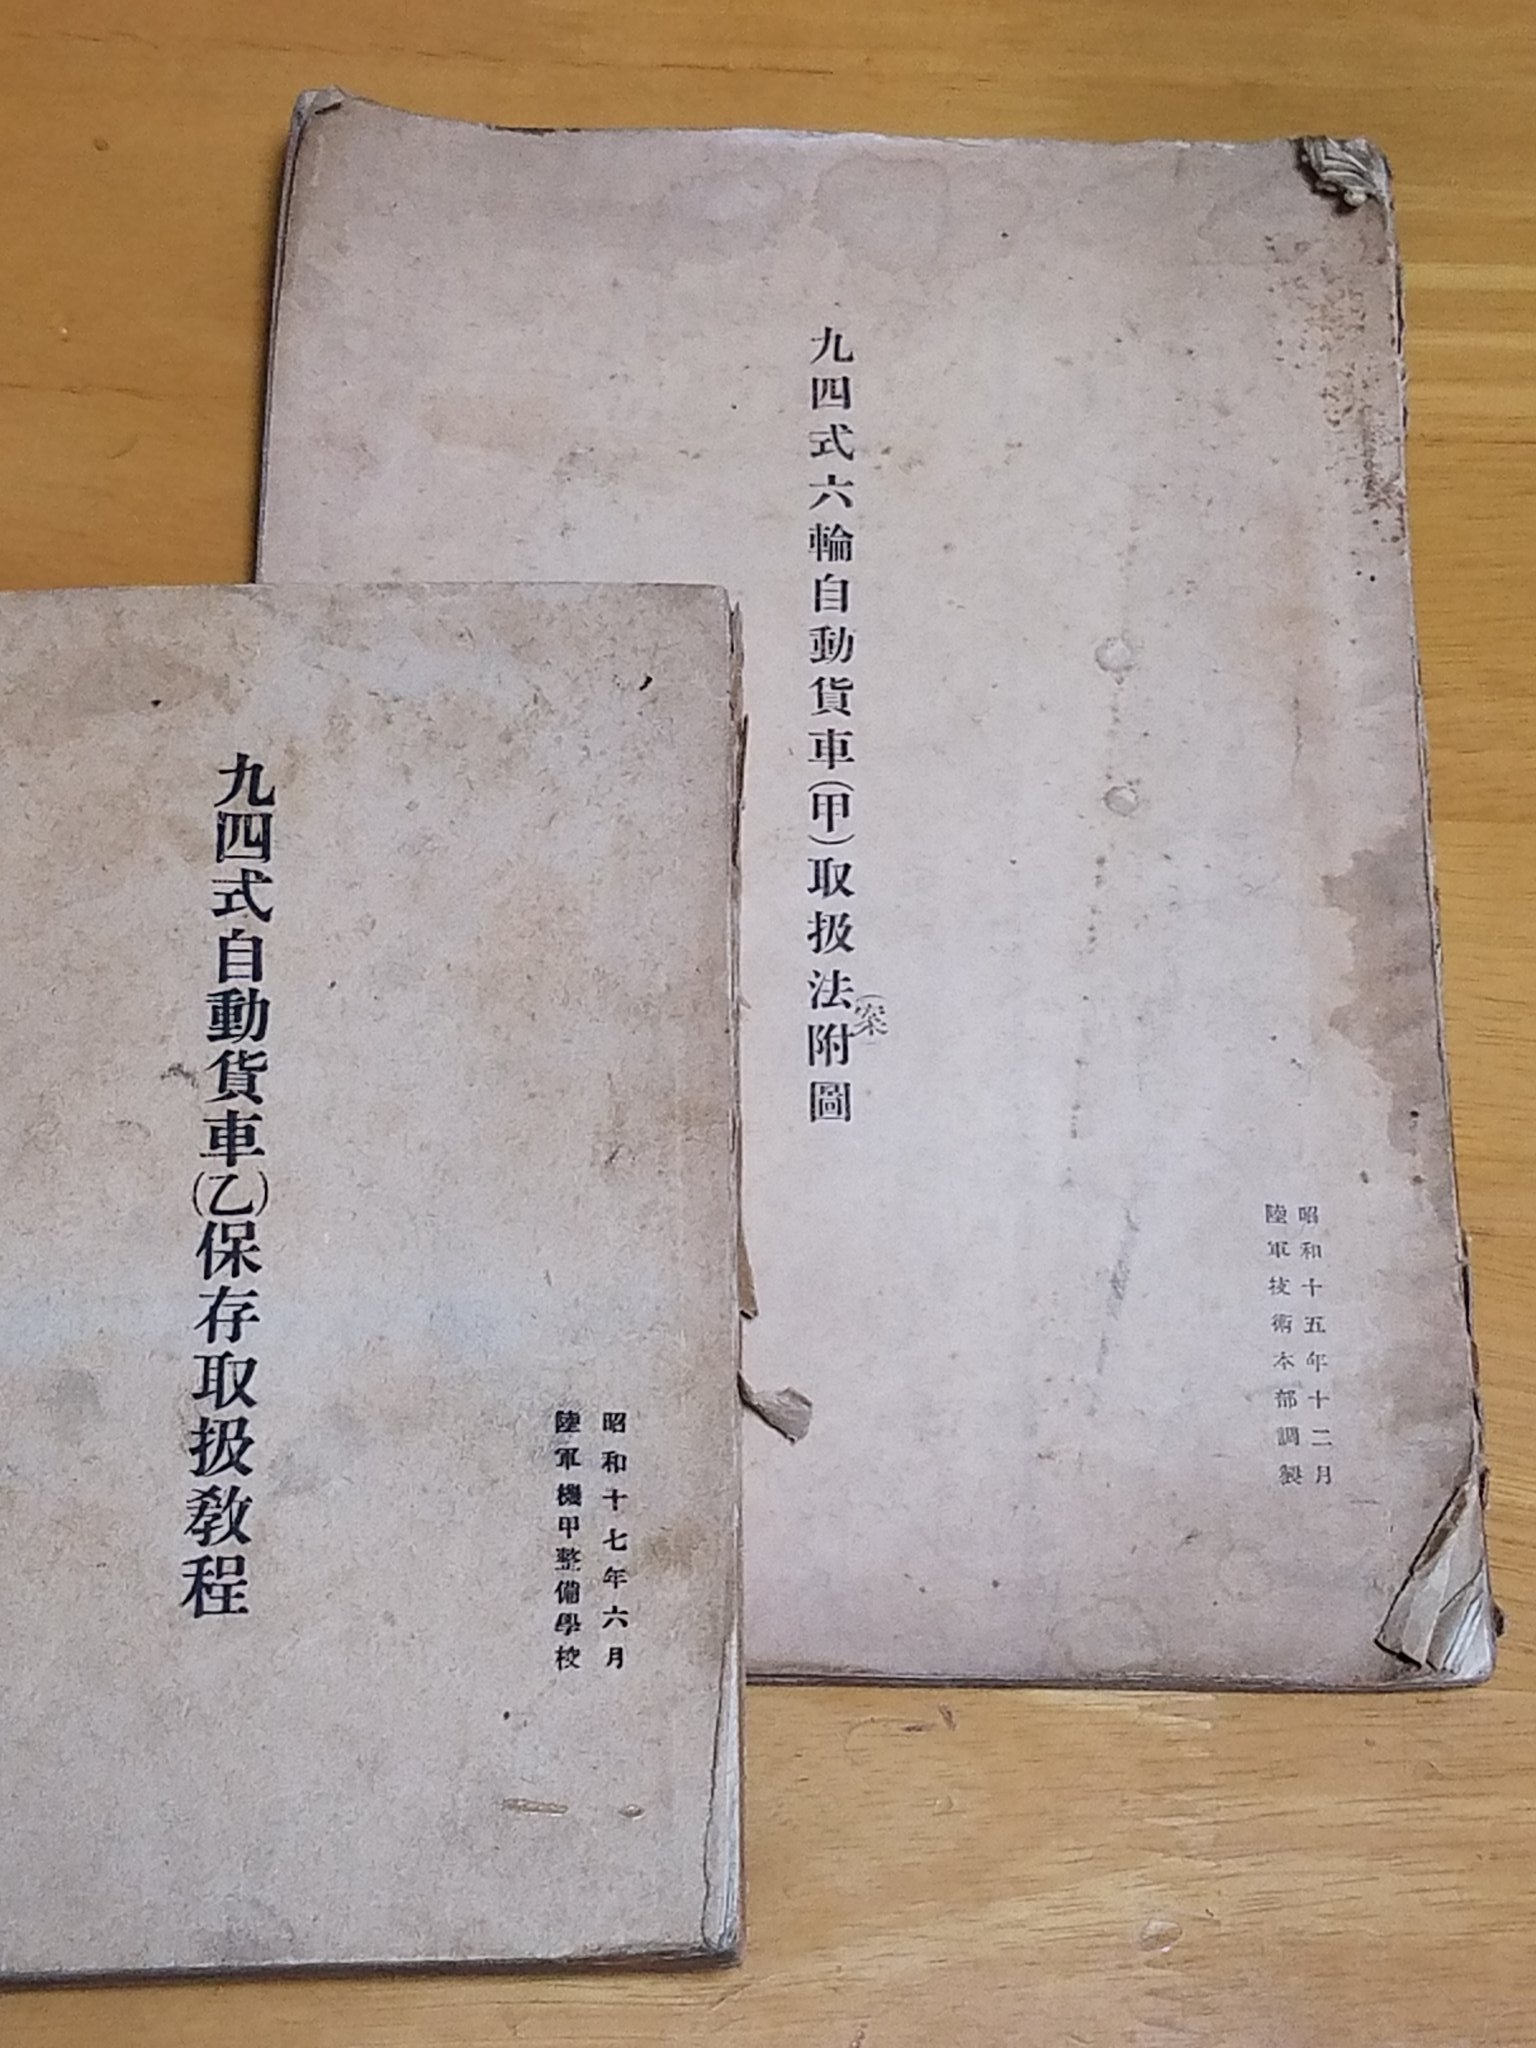 九四式六輪自動貨車(甲)取扱法附圖
(案
昭和十五年十二月
陸軍技術本部調製
九四式自動貨車(乙)保存取扱教程
昭和十七年六月
陸軍機甲整備學校